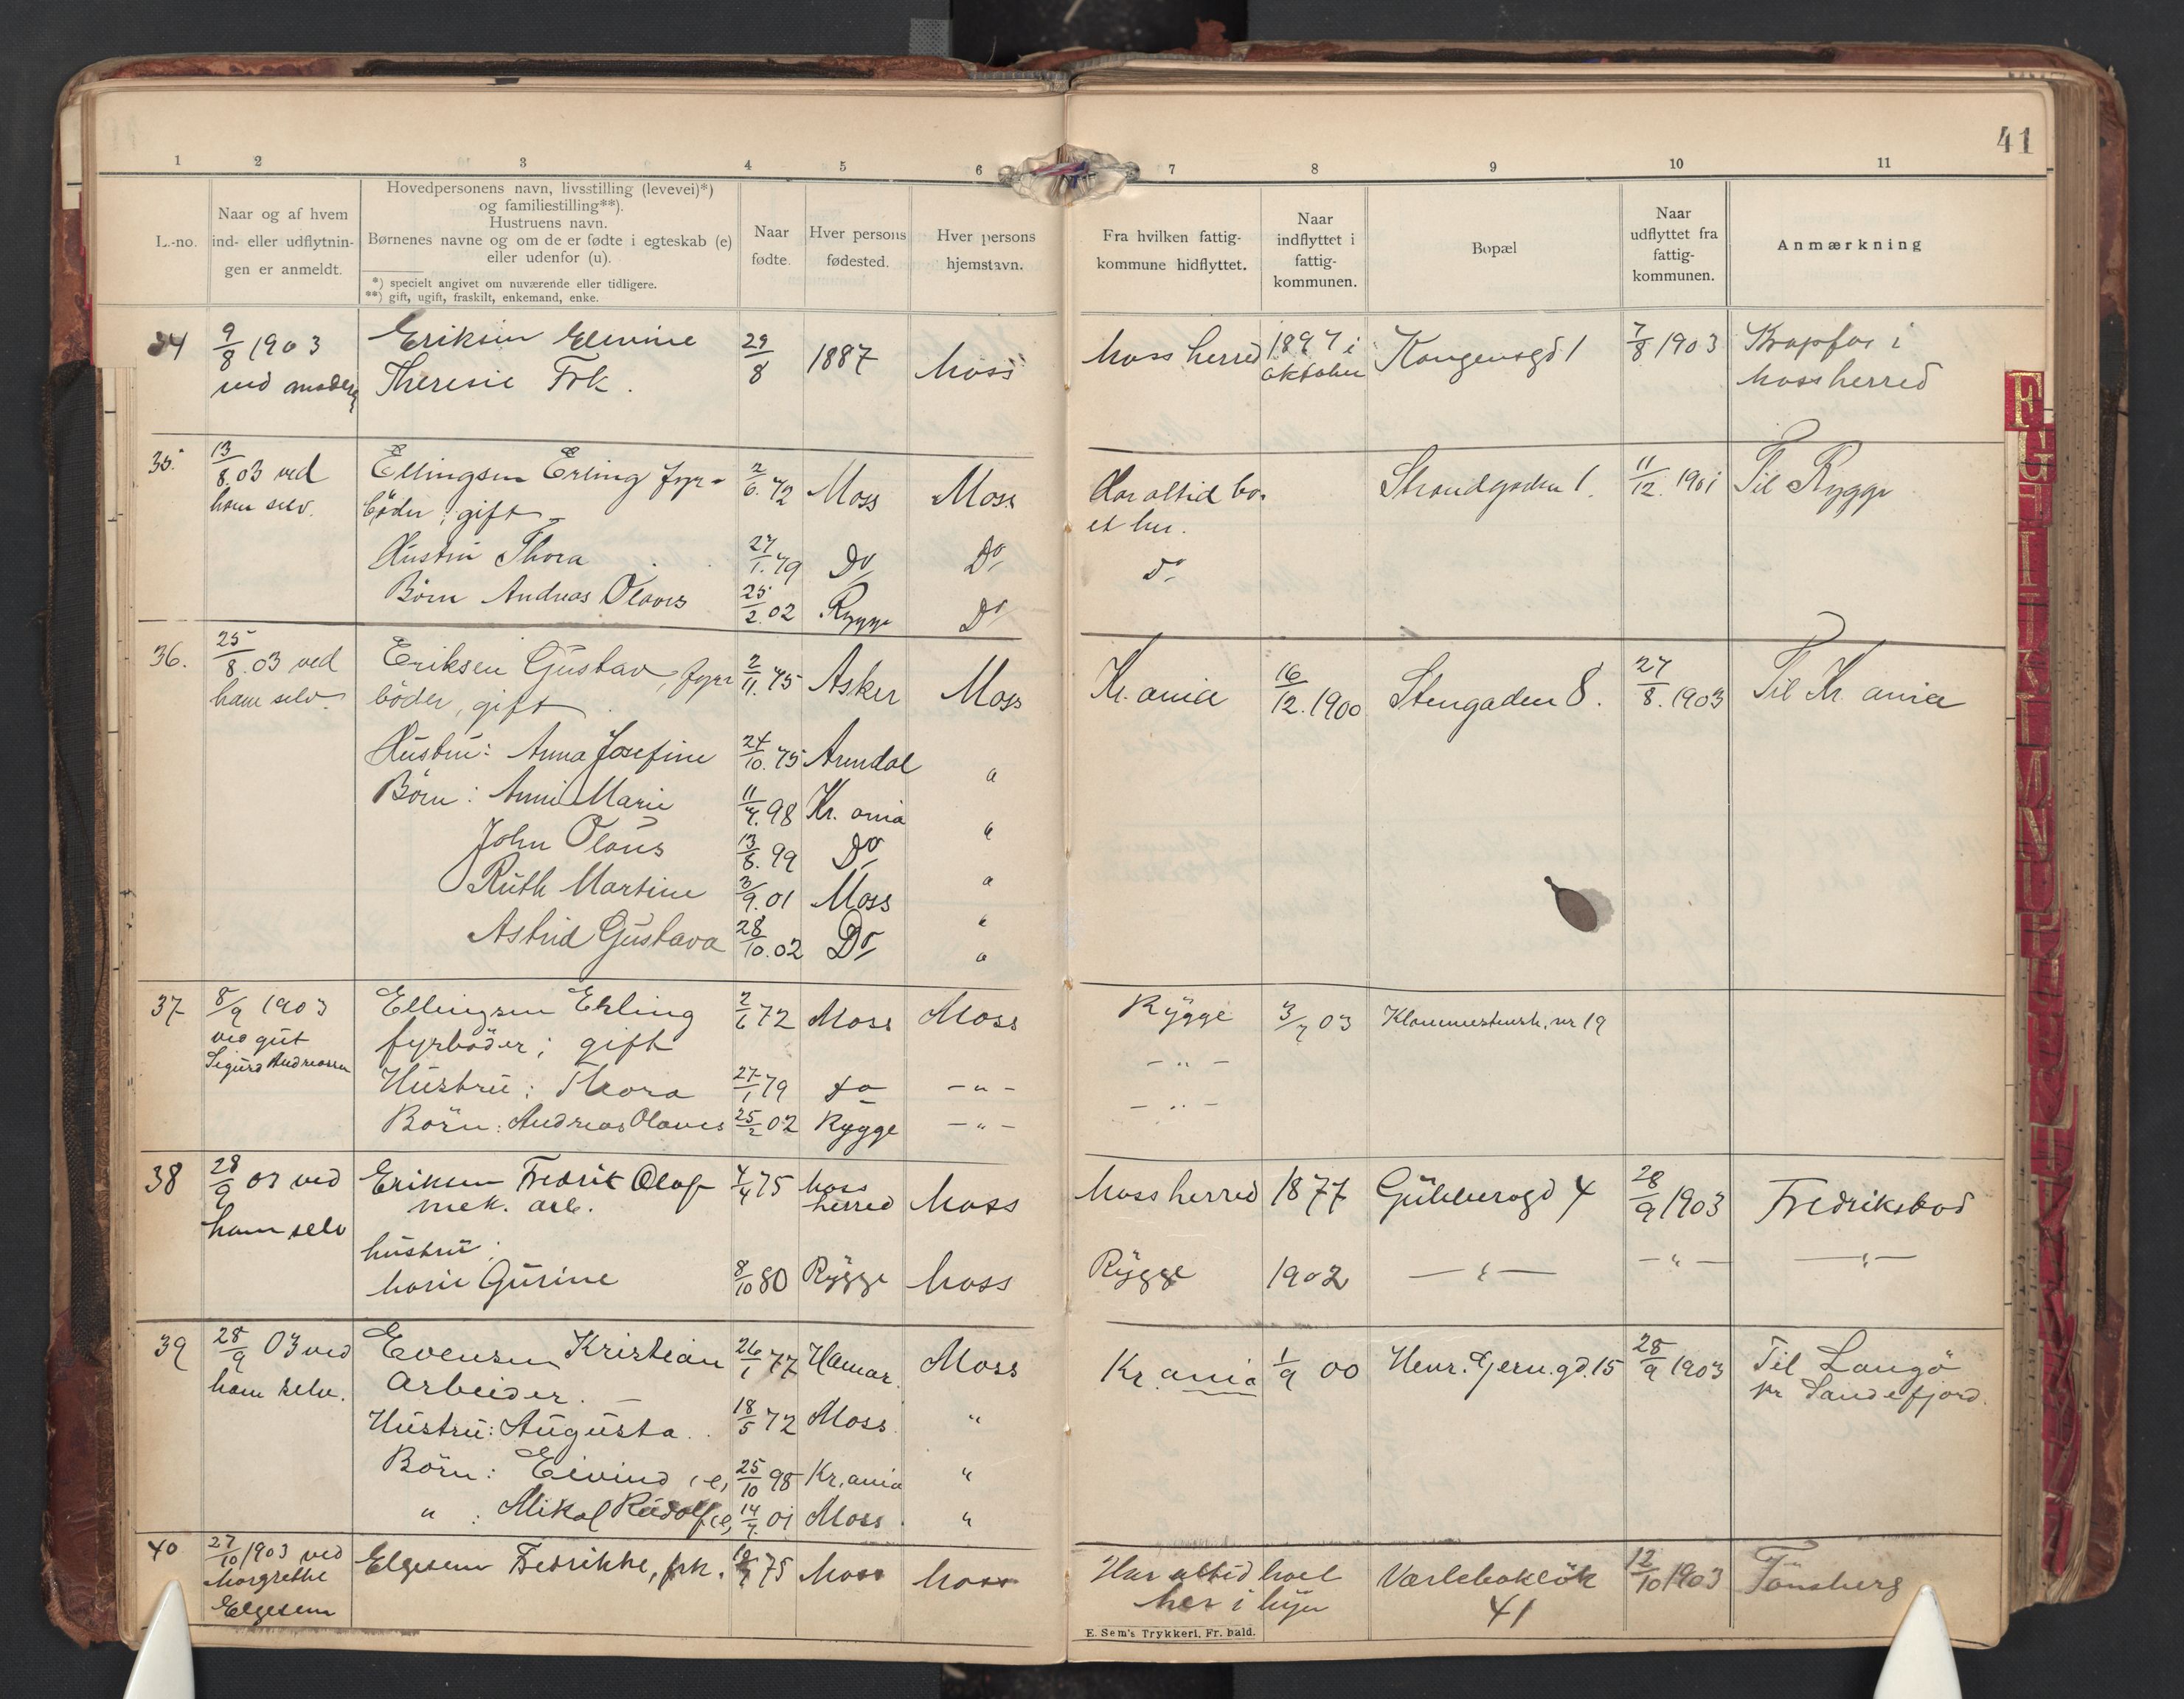 41
1 2 3 4 5 6 7 8 9 10 11
L.-no.
Naar og af hvem
ind- eller udflytnin-
gen er anmeldt.
Hovedpersonens navn, livsstilling (levevei)*)
og familiestilling**).
Hustruens navn.
Børnenes navne og om de er fødte i egteskab (e)
eller udenfor (u).
*) specielt angivet om nuværende eller tidligere.
**) gift, ugift, fraskilt, enkemand, enke.
Naar
fødte.
Hver persons
fødested.
Hver persons
hjemstavn.
Fra hvilken fattig-
kommune hidflyttet.
Naar
indflyttet i
fattig-
kommunen.
Bopæl
Naar
udflyttet fra
fattig-
kommunen.
Anmærkning
34 9/8 1903 Eriksen Elevine 29/8 1887 Moss Moss herred 1897 i Kongensgd 1 7/8 1903 Krapfos i
ved moderen Theresie Frk. oktober Mossherred
35. 13/8.03 ved Ellingsen Erling fyr- 2/6.72 Moss Moss Har altid bo- Strandgaden 1. 11/12.1901 Til Rygge
ham selv. böder; gift et her.
Hustru Thora 27/1.79 Do Do Do
Börn Andreas Olaves 25/2.02 Rygge Do
36. 25/8.03 ved Eriksen Gustav, fyr- 2/11.75 Asker Moss Kr.ania 16/12.1900 Stengaden 8. 27/8.1903 Til Kr.ania
ham selv. böder, gift
Hustru: Anna Josefine 24/10.75 Arendal "
Börn: Anni Marie 11/4.98 Kr.ania "
John Olaus 13/8.99 Do "
Ruth Martine 3/9.01 Moss "
Astrid Gustava 28/10.02 Do "
37 8/9 1903 Ellingsen Erling 2/6 72 Moss Moss Rygge 3/7 03 nr 19
ved gut fyrböder; gift - " -
Sigurd Andreassen
Hustru: Thora 27/1 79 do - " -
Börn: Andreas Olaves 25/2 02 Rygge - " - - " -
38 28/9 03 ved Eriksen Fredrik Olaf 4/4 75 Moss herred Moss Moss herred 1877 Gudesgd 4 28/9 1903 Fredrikstad
ham selv mek. arb.
hustru:
Marie Gurine 8/10 80 Rygge Moss Rygge 1902 - " - - " - - " -
39 28/9 03 ved Evensen Kristian 26/1 77 Hamar. Moss Kr.ania 1/9 00 Henr. Gern.gd. 15 28/9 1903 Til Langö
ham selv. Arbeider. pr Sandefjord.
Hustru: Augusta. 18/5 72 Moss. "
Börn: Eivind (e) 25/10 98 Kr.ania "
" : Mikal Rudolf (e) 14/7 01 Moss. "
40 27/10 1903 ved Elgesem Fredrikke, frk. 75 Moss Moss Har altid boet Værlebakløk 12/10 1903 Tönsberg
Margrethe her i byen 41
Elgesem
E. Sem's Trykkeri, Fr. hald.